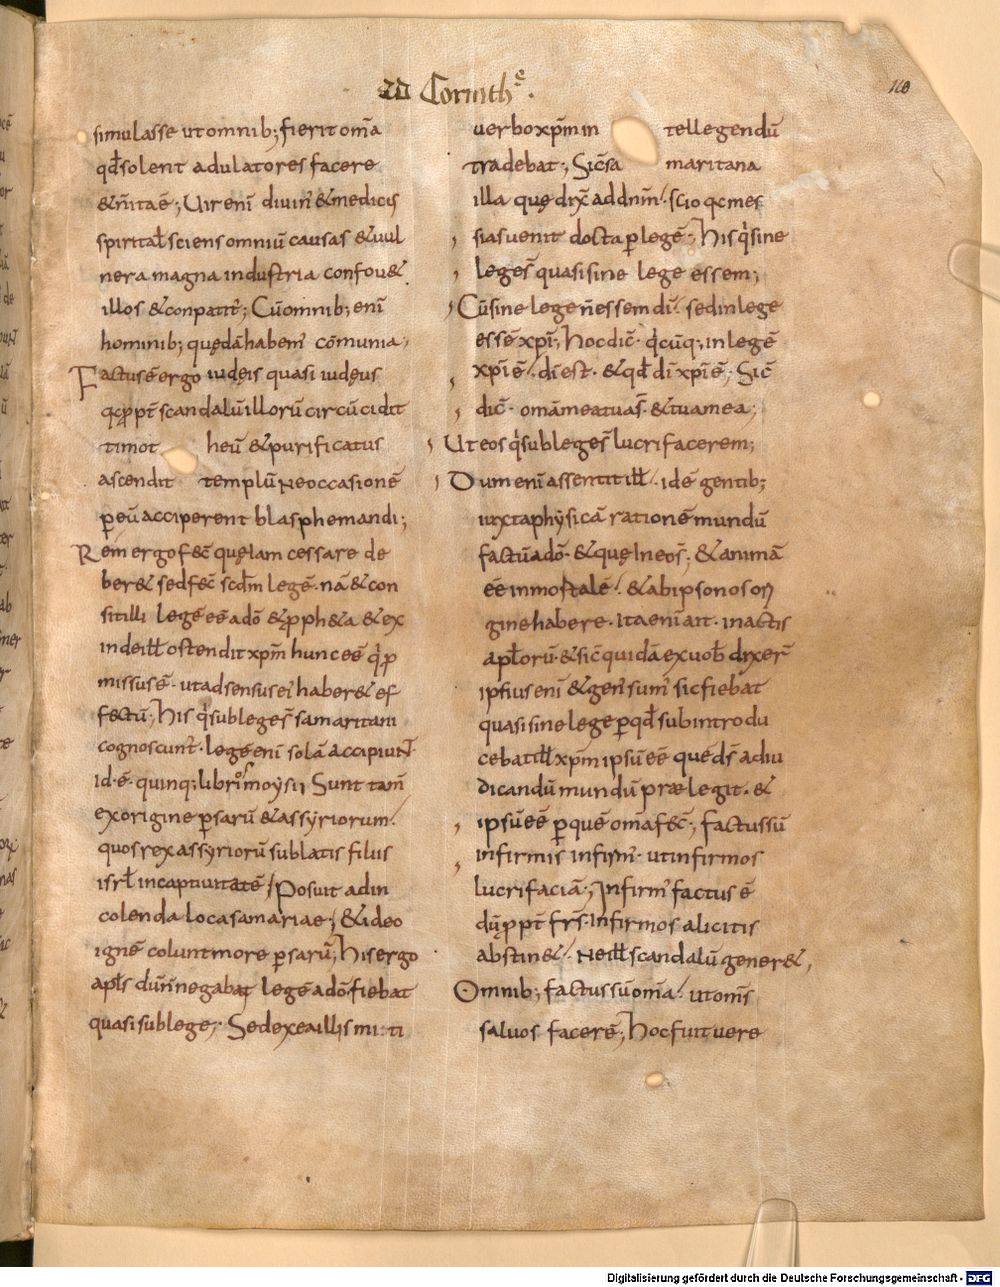 AD Corinth͞e.
160
simulasse ut omnib; fierit om̄a
qđ solent adulatores facere
& n̄ ita ē; Uir eni̅ diuin̾ & medicus
spirital̄ sciens omniū causas & uul
nera magna industria confou&
illos & conpatit̾; Cū omnib; eni̅
hominib; quędā habem̾ cōmunia,
Factus ē ergo iudęis quasi iudęus
q̄ ꝓpt̄ scandalū illorū circūcidit
timotheū & purificatus
ascendit templū ne occasionē
ꝑ eū acciperent blasphemandi;
Rem̄ ergo fec̄ quę iam cessare de
ber& sed fec̄ scd̄m legē. nā & con
sitilli legē eē a dō & ꝓph&a & ex
inde ill̄ ostendit xp̄m hunc eē qͥ ꝓ
missus ē. ut ad sensus ei̾ haber& ef
fectū; His qͥ sub lege s̄ samaritani
cognoscunt̾. legē eni̅ solā accipiunt.
id. ē. quinq; libros moysi; Sunt tam̄
ex origine ꝑsarū & assyriorum.
quos rex assyriorū sublatis filiis
isrl̄ in captiuitatē; Posuit ad in
colenda loca samariae; & ideo
ignē colunt more ꝑsarū; His ergo
apl̄s dū n̄ negabat legē a dō. fiebat
quasi sub lege; Sed ex ea illis mi:ti
uerbo xp̄m intellegendū
tradebat; Sic̄ samaritana
illa quę dix̄ ad dn̄m. scio q̄ mes
sias uenit docta ꝑ legē; His qͥ sine
lege s̄ quasi sine lege essem;
Cū sine lege n̄ essem di̅. sed in lege
essē xp̄i; Hoc dic̄. qͥcūq; in legē
xp̄i ē. di̅ est. & qđ di̅ xp̄i ē; Sic̄
dic̄. om̄a mea tua s̄. & tua mea;
Ut eos qͥ sub lege s̄ lucrifacerem;
Dum eni̅ assentit ill̄. idē gentib;
iuxta physicā rationē mundū
factū a dō. & quę In eo s̄; & animā
eē inmortalē. & ab ipso nos ori
gine habere. ita eni̅ ait. in actis
apl̄orū. & sic̄ quidā ex uob̄ dixer̄
ipsius eni̅ & gen̾ sum̾ sic fiebat
quasi sine lege ꝑ qđ subintrodu
cebat ill̄ xp̄m ipsū eē quē ds̄ adiu
dicandū mundū prælegit. &
ipsū eē ꝑ quē om̄a fec̄; factus sū
infirmis infirm̾. ut infirmos
lucrifaciā; Infirm̾ factus ē
dū ꝓpt̄ frs̄. infirmos alicitis
abstin&. Ne ill̄ scandalū gener&,
Omnib; factus sū om̄a. ut om̄s
saluos facerē; Hoc fuit uere
Digitalisierung gefördert durch die Deutsche Forschungsgemeinschaft - DFG